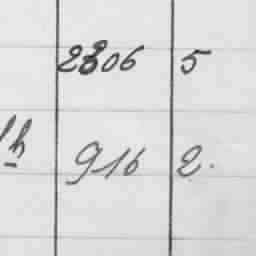 2306 5
916 2.